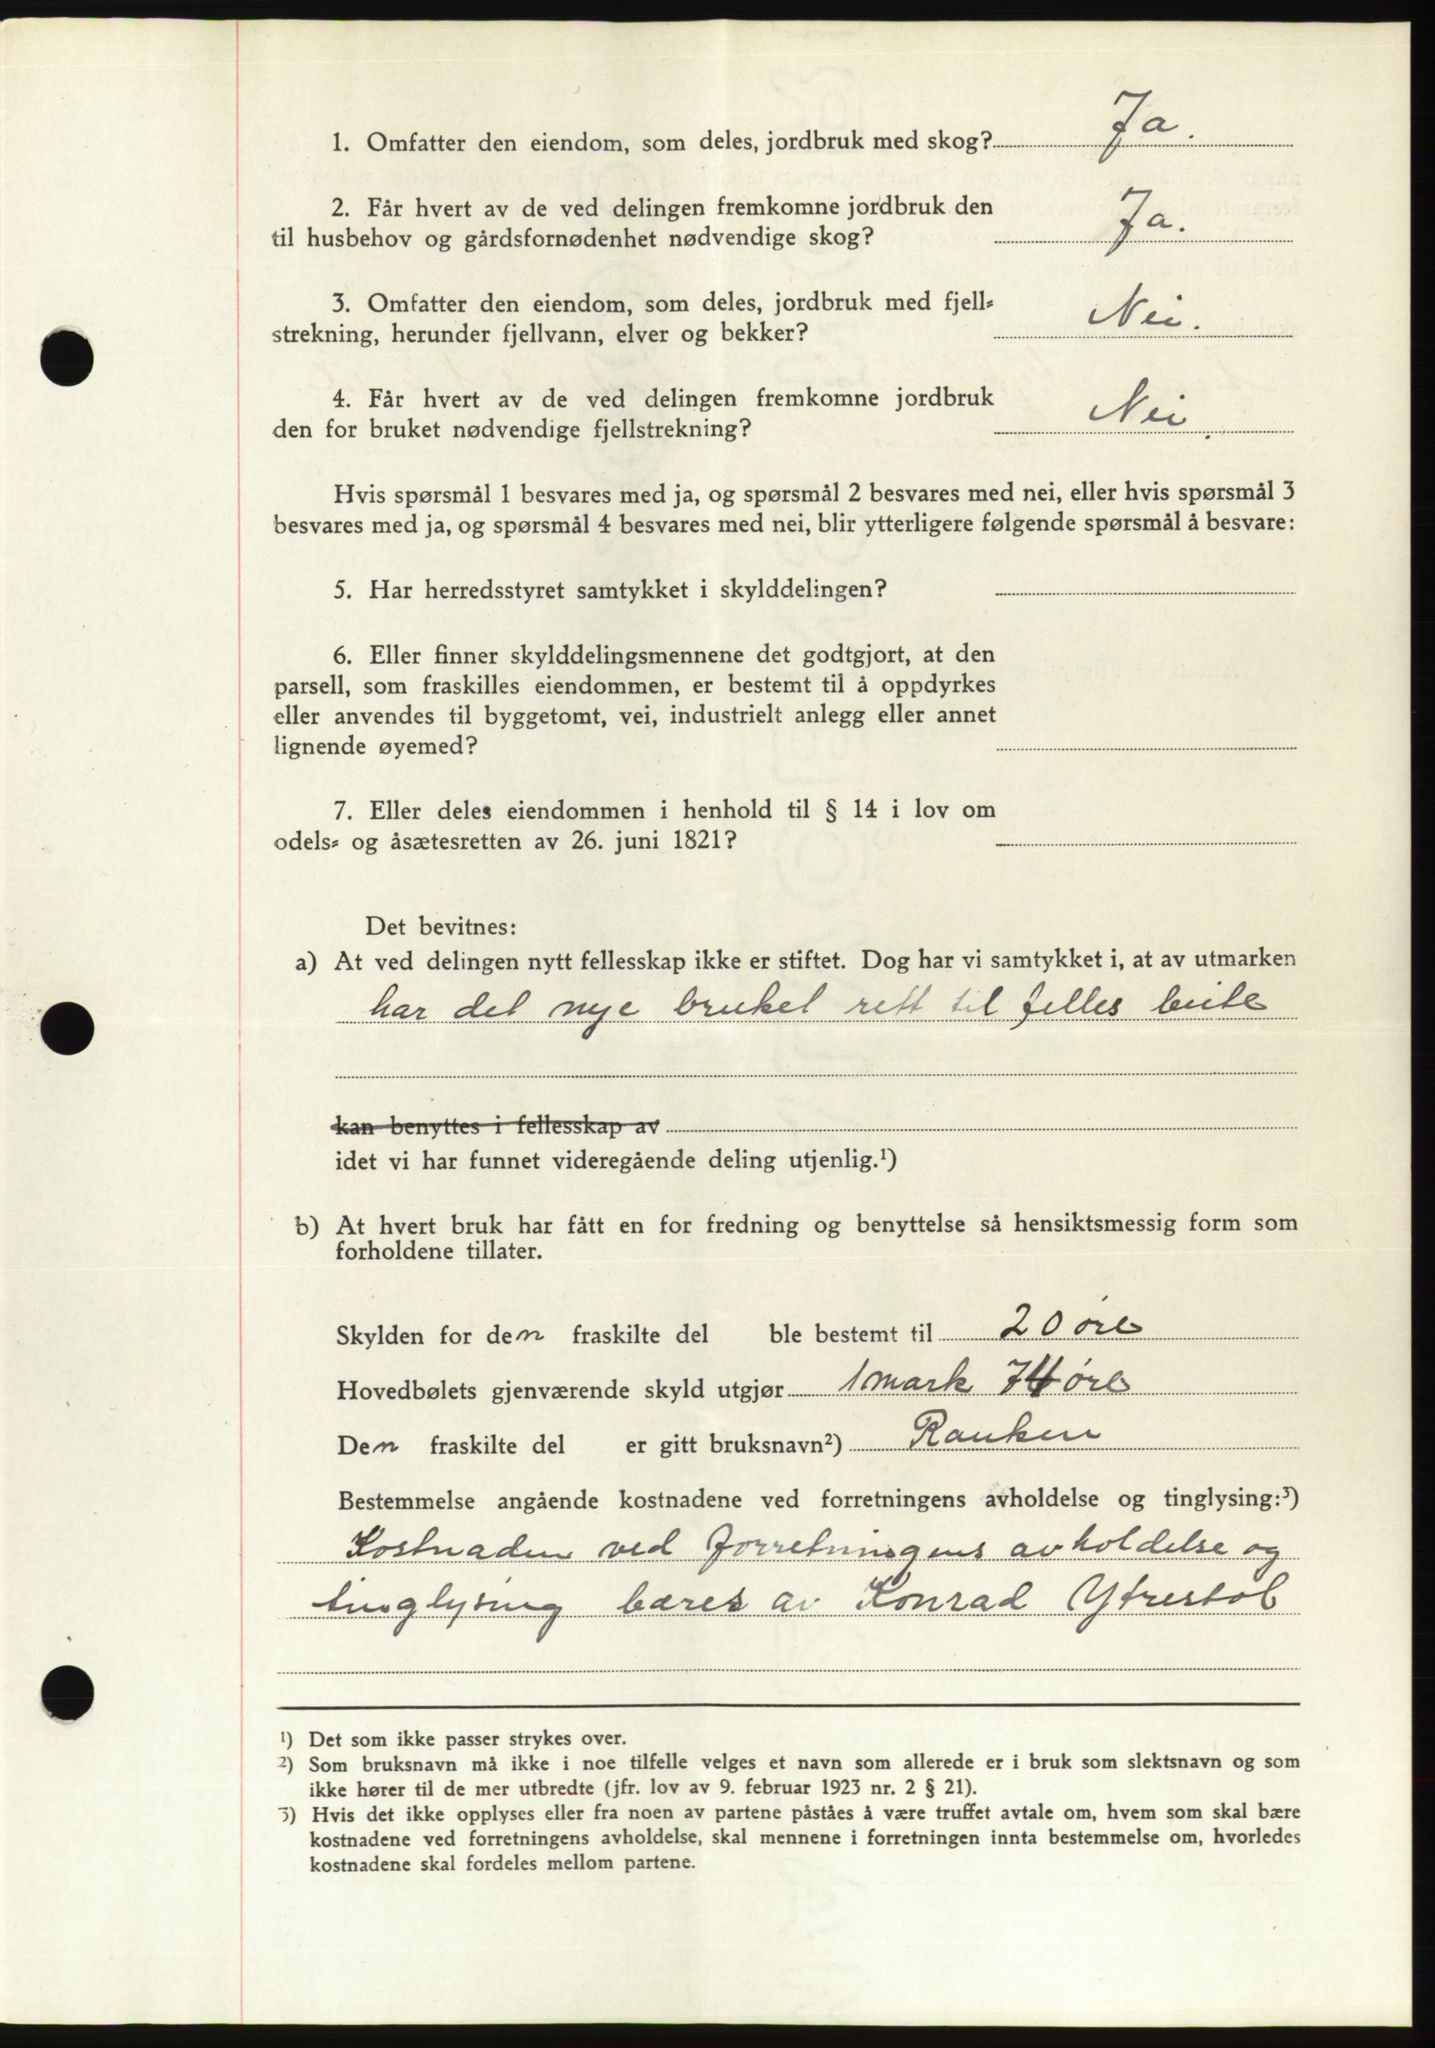 1. Omfatter den eiendom, som deles, jordbruk med skog? Ja.
2. Får hvert av de ved delingen fremkomne jordbruk den
til husbehov og gårdsfornødenhet nødvendige skog? Ja.
3. Omfatter den eiendom, som deles, jordbruk med fjell-
strekning, herunder fjellvann, elver og bekker? Nei.
4. Får hvert av de ved delingen fremkomne jordbruk
den for bruket nødvendige fjellstrekning? Nei.
Hvis spørsmål 1 besvares med ja, og spørsmål 2 besvares med nei, eller hvis spørsmål 3
besvares med ja, og spørsmål 4 besvares med nei, blir ytterligere følgende spørsmål å besvare:
5. Har herredsstyret samtykket i skylddelingen?
6. Eller finner skylddelingsmennene det godtgjort, at den
parsell, som fraskilles eiendommen, er bestemt til å oppdyrkes
eller anvendes til byggetomt, vei, industrielt anlegg eller annet
lignende øyemed?
7. Eller deles eiendommen i henhold til § 14 i lov om
odels- og åsætesretten av 26. juni 1821?
Det bevitnes:
a) At ved delingen nytt fellesskap ikke er stiftet. Dog har vi samtykket i, at av utmarken
har det nye bruket rett til felles beite
kan benyttes i fellesskap av
idet vi har funnet videregående deling utjenlig.¹)
b) At hvert bruk har fått en for fredning og benyttelse så hensiktsmessig form som
forholdene tillater.
Skylden for den fraskilte del ble bestemt til 20 øre
Hovedbølets gjenværende skyld utgjør 1 mark 74 øre
Den fraskilte del er gitt bruksnavn²) Rauken
Bestemmelse angående kostnadene ved forretningens avholdelse og tinglysing:³)
Kostnaden ved forretningens avholdelse og
tinglysing bæres av Konrad Ytrestøl
¹) Det som ikke passer strykes over.
²) Som bruksnavn må ikke i noe tilfelle velges et navn som allerede er i bruk som slektsnavn og som
ikke hører til de mer utbredte (jfr. lov av 9. februar 1923 nr. 2 § 21).
³) Hvis det ikke opplyses eller fra noen av partene påstås å være truffet avtale om, hvem som skal bære
kostnadene ved forretningens avholdelse, skal mennene i forretningen innta bestemmelse om, hvorledes
kostnadene skal fordeles mellom partene.